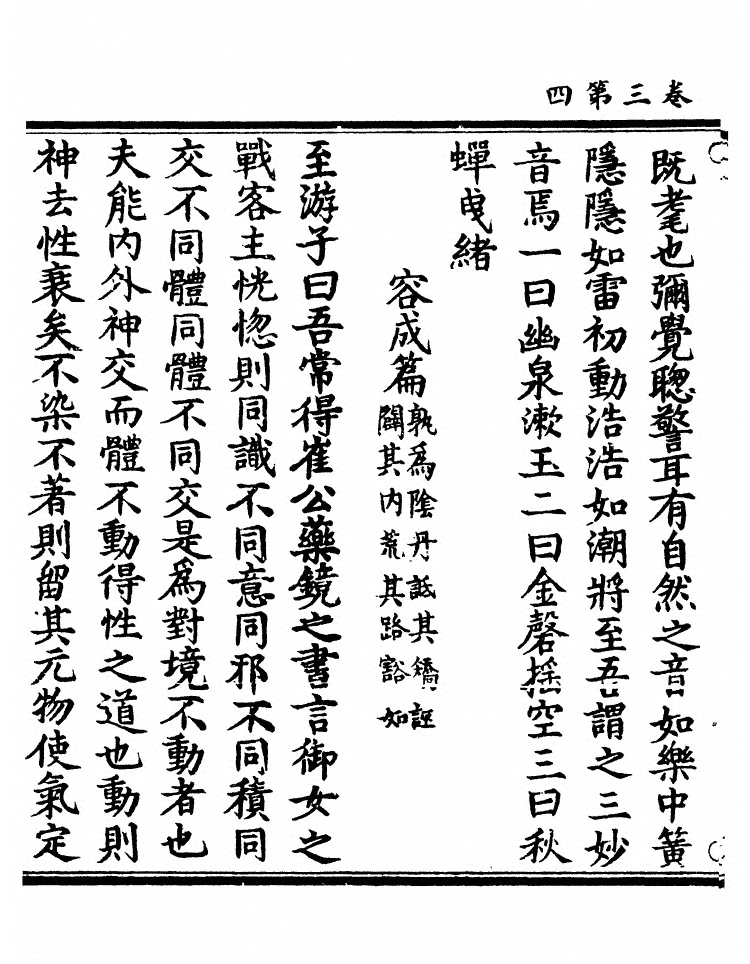 四第三卷
既耄也彌覺聰警耳有自然之音如樂中簧
隱隱如雷初動浩浩如潮將至吾謂之三妙
音焉一曰幽泉漱玉二曰金磬摇空三曰秋
蟬曳緒
容成篇
孰爲陰丹詆其矯誣
闢其内荒其路豁如
至游子曰吾常得崔公藥鏡之書言御女之
戰客主恍惚則同識不同意同邪不同積同
交不同體同體不同交是爲對境不動者也
夫能内外神交而體不動得性之道也動則
神去性衰矣不染不著則留其元物使氣定